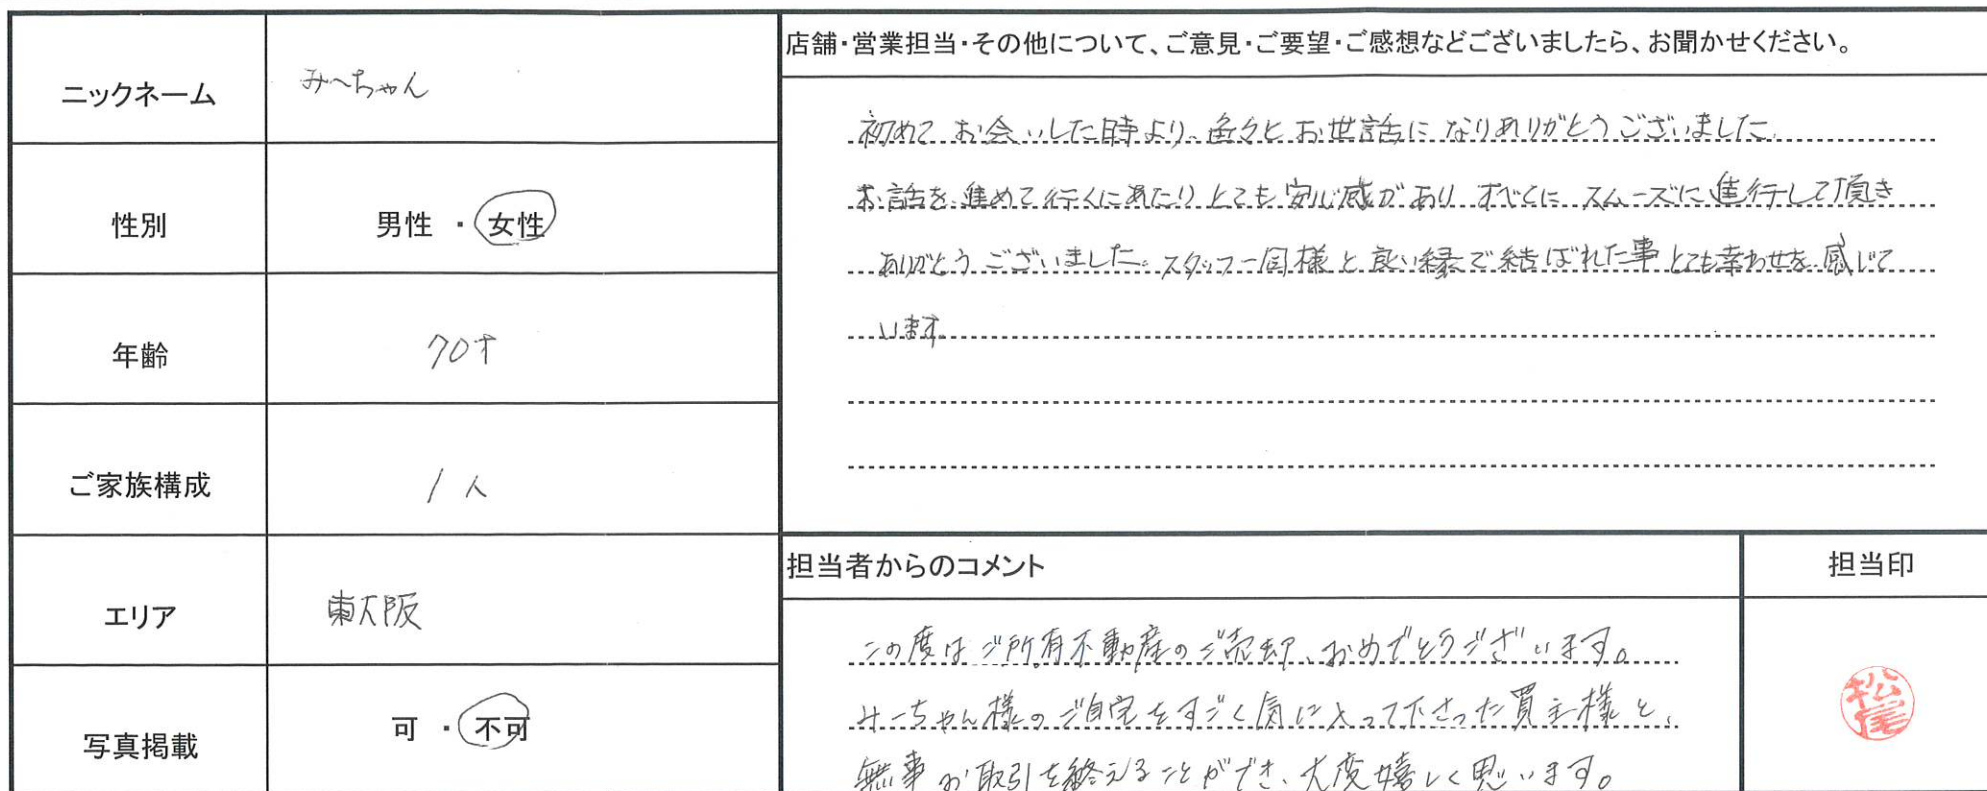 ニックネーム
みーちゃん
性別
男性 ・ 女性
年齢
70才
ご家族構成
1人
エリア
東大阪
写真掲載
可 ・ 不可
店舗・営業担当・その他について、ご意見・ご要望・ご感想などございましたら、お聞かせください。
初めてお会いした時より、色々とお世話になりありがとうございました。
お話を進めて行くにあたりとても安心感があり すべてに スムーズに進行して頂き
ありがとうございました。スタッフ一同様と良い縁で結ばれた事とても幸わせを感じて
います。
担当者からのコメント
この度はご所有不動産のご売却、おめでとうございます。
みーちゃん様のご自宅をすごく気に入って下さった買主様と、
無事お取引を終えることができ、大変嬉しく思います。
担当印
松尾